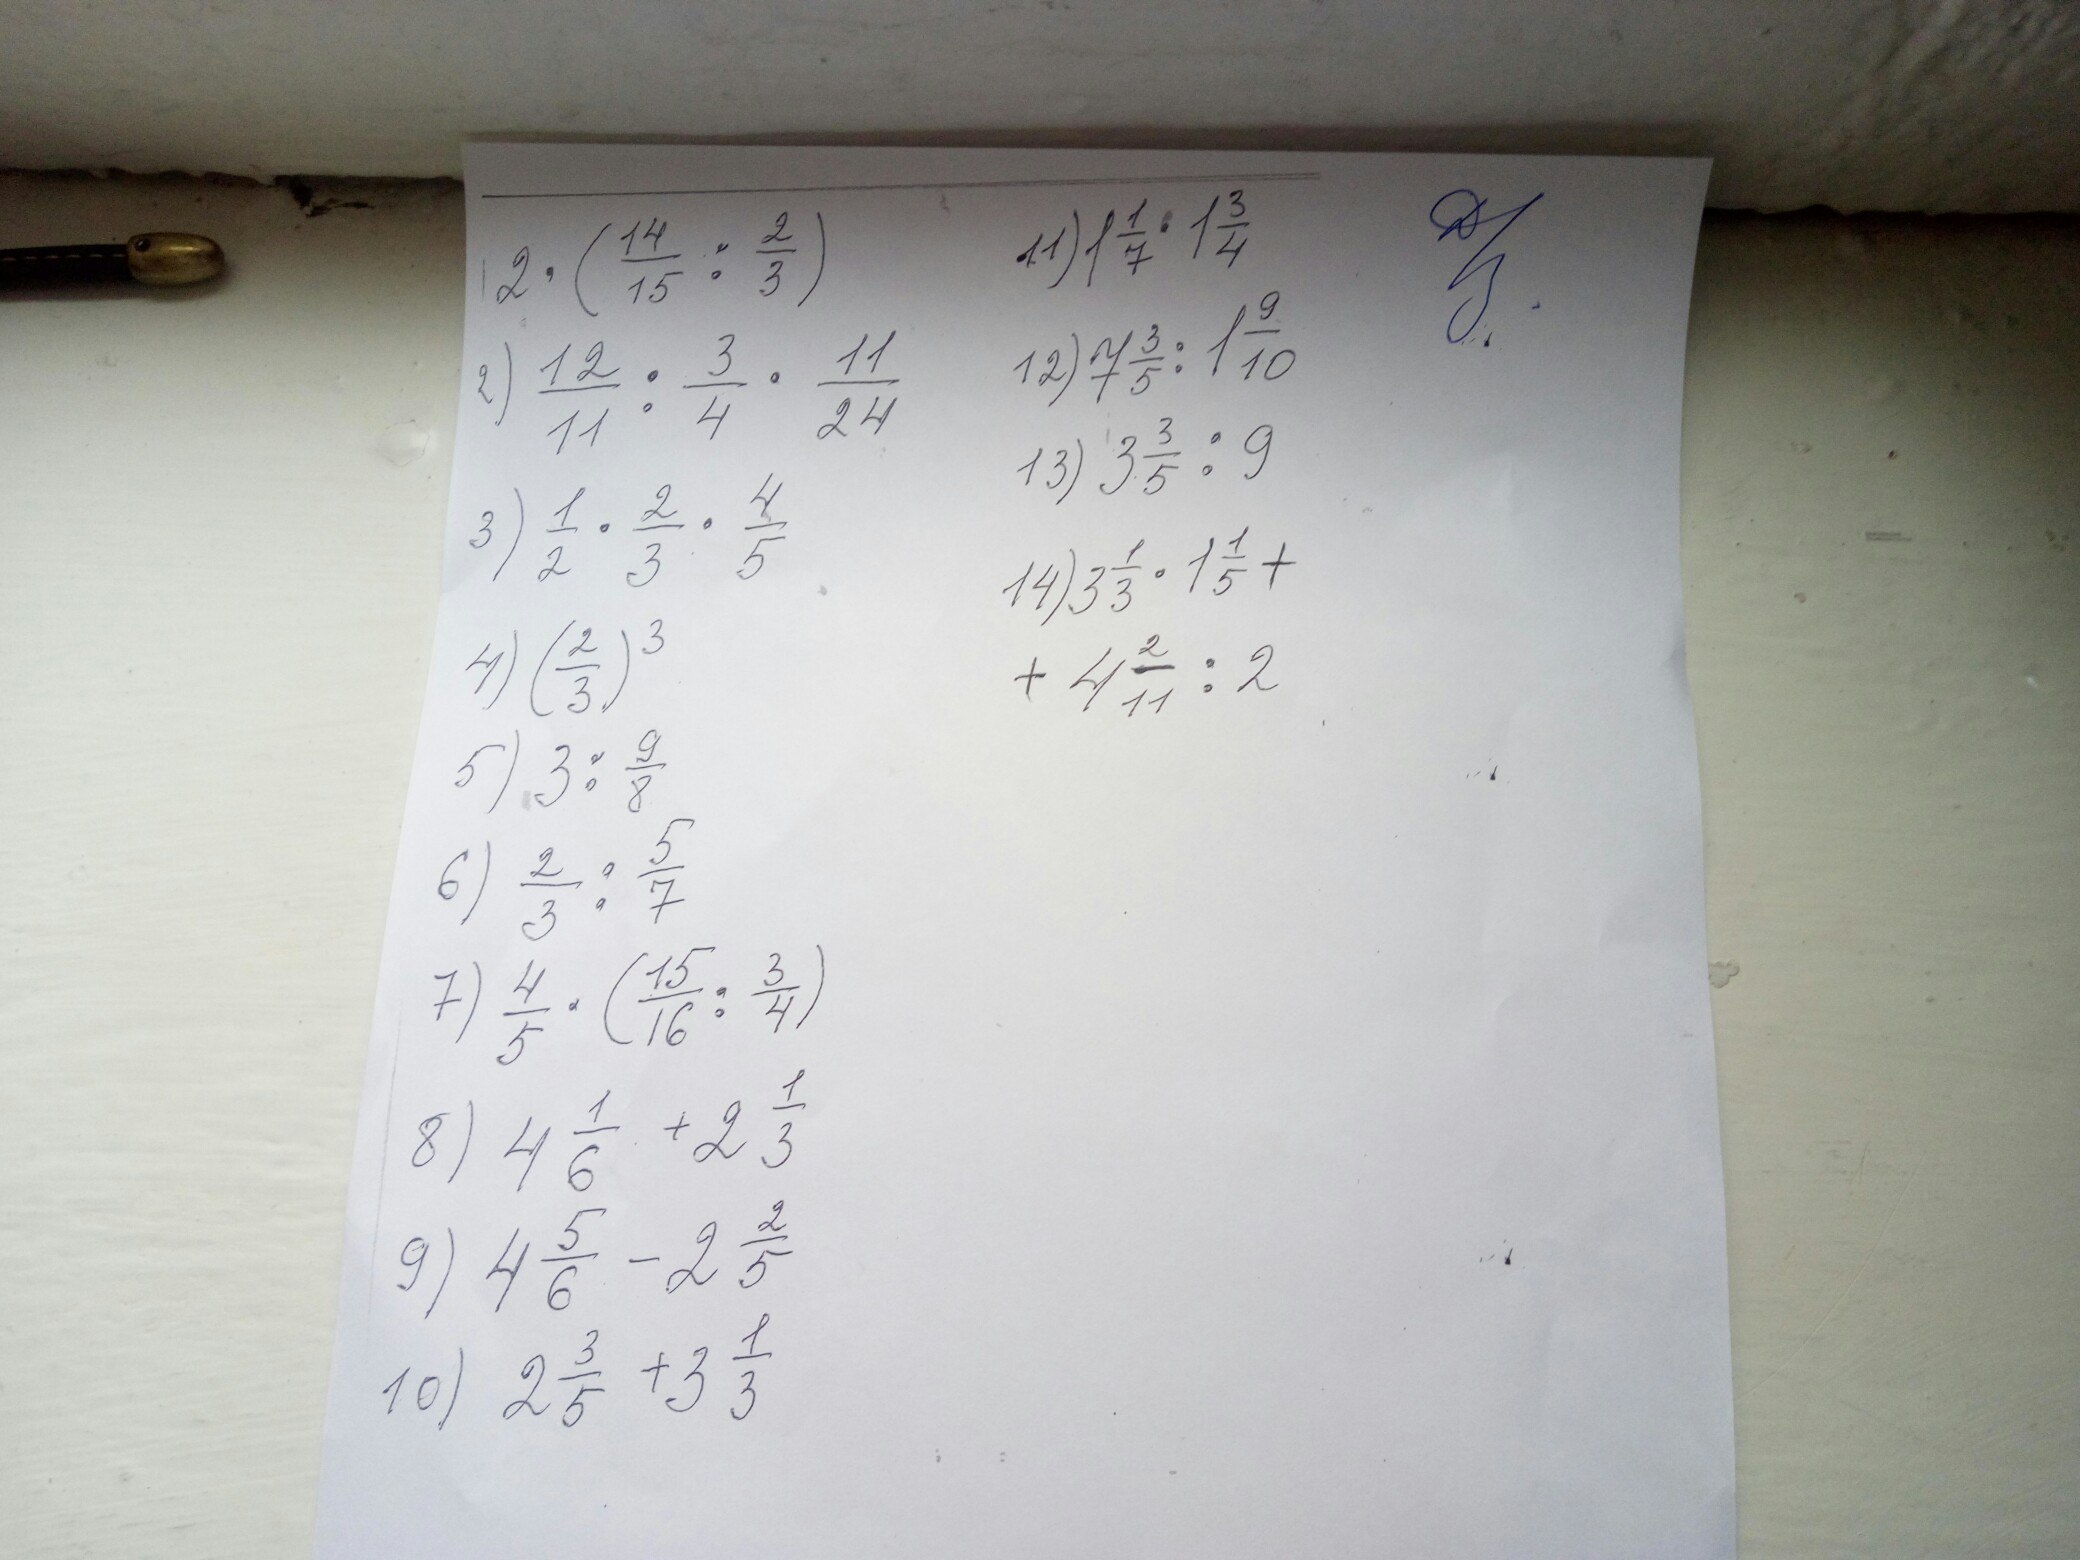 2 · (14/15 : 2/3)
2) 12/11 : 3/4 · 11/24
3) 1/2 · 2/3 · 4/5
4) (2/3)³
5) 3 : 9/8
6) 2/3 : 5/7
7) 4/5 · (15/16 : 3/4)
8) 4 1/6 + 2 1/3
9) 4 5/6 - 2 2/5
10) 2 3/5 + 3 1/3
11) 1 1/7 · 1 3/4
12) 7 3/5 : 1 9/10
13) 3 3/5 : 9
14) 3 1/3 · 1 1/5 +
+ 4 2/11 : 2
Д/з.